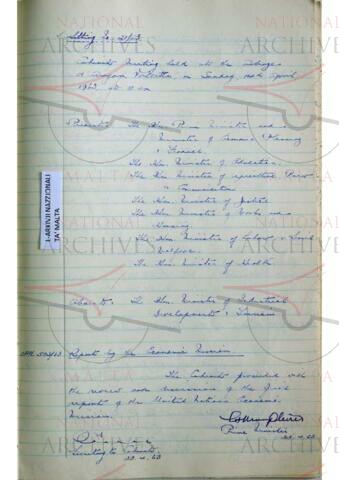 Sitting No 21/63
Cabinet Meeting held at the Auberge
d'Aragon, Valletta, on Sunday, April
1963, at 11 am
Present: The Hon. Prime Minister and
Minister of Economic Planning
& Finance.
The Hon. Minister of Education.
The Hon. Minister of Agriculture, Power
& Communications
The Hon. Minister of Justice
The Hon. Minister of Works and
Housing.
The Hon. Minister of Labour & Social
Welfare.
The Hon. Minister of Health
Absent: The Hon. Minister of Industrial
Development & Tourism
Report by the Economic Mission.
The Cabinet proceeded with
the second of the first
report of the United Nations Economic
Mission.
Prime Minister
Secretary to Cabinet
22.4.63
22.4.63
L-ARKIVJI NAZZJONALI
TA' MALTA
NATIONAL
ARCHIVES
MALTA